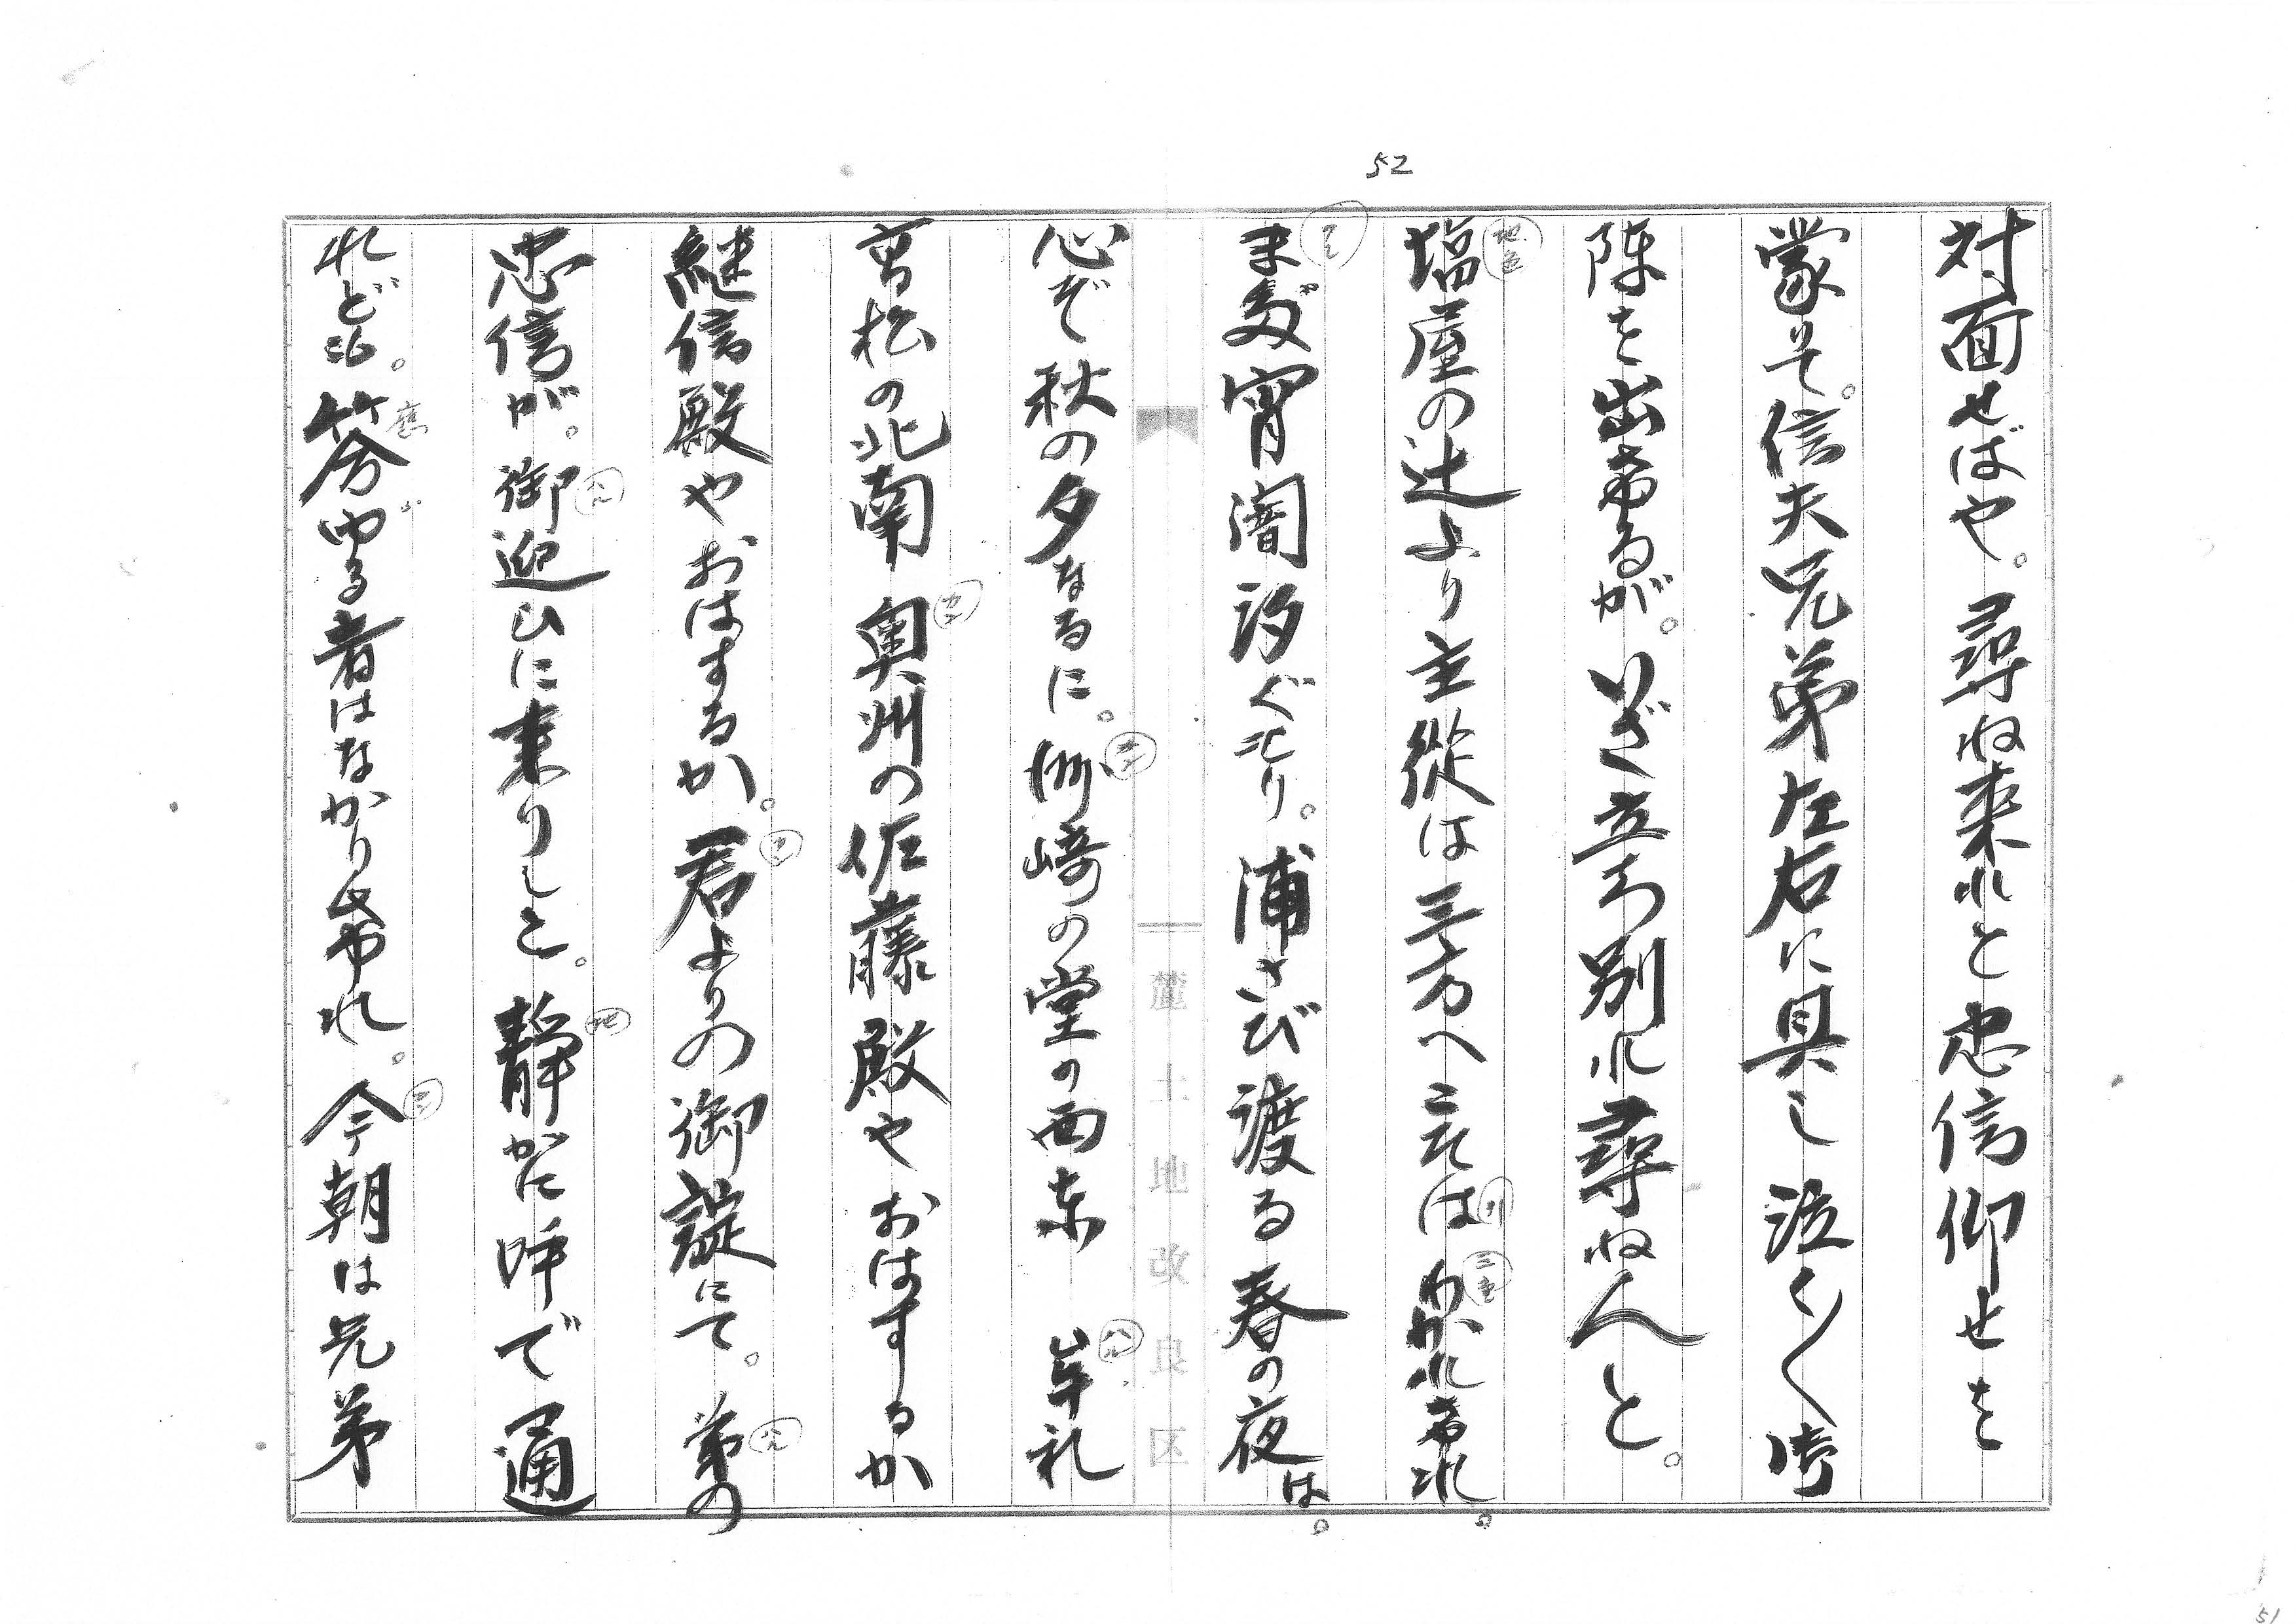 52
対面せばや。尋ね来れと忠信仰せを
蒙りて。信夫兄弟左右に具し泣く〱御
陣を出けるが。いざ立ち別れ尋ねんと。
塩屋の辻より主従は三方へこそはわかれけれ。
まだ宵闇汐ぐもり。浦さび渡る春の夜は。
心ぞ秋の夕なるに。洲崎の堂の西東 牟礼
高松の北南 奥州の佐藤殿やおはするか
継信殿やおはするか。君よりの御諚にて。弟の
忠信が。御迎ひに来りしと。静かに呼で通
れども。答ゆる者はなかりけれ。今朝は兄弟
51